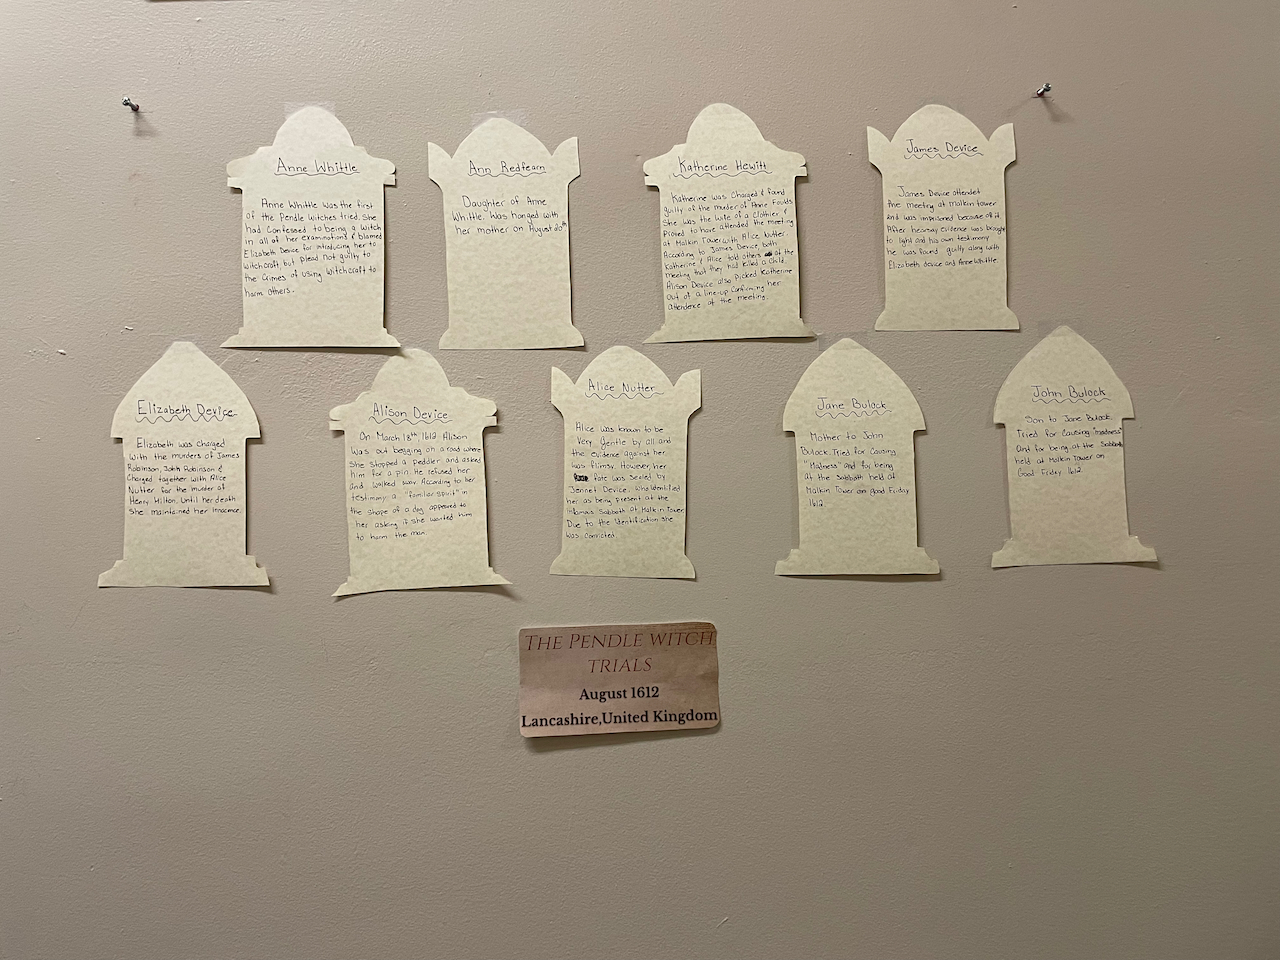 Anne Whittle
Anne Whittle was the first
of the Pendle Witches tried. She
had confessed to being a witch
in all of her examinations & blamed
Elizabeth Device for introducing her to
witchcraft, but plead not guilty to
the crimes of using witchcraft to
harm others.
Ann Redfearn
Daughter of Anne
Whittle. Was hanged with
her mother on August 20th
Katherine Hewitt
Katherine was charged & found
guilty of the murder of Anne Foulds
She was the wife of a clothier &
proved to have attended the meeting
at Malkin Tower with Alice Nutter.
According to James Device both
Katherine & Alice told others at the
meeting that they had killed a child.
Alison Device also picked Katherine
out of a line-up confirming her
attendence at the meeting.
James Device
James Device attended
the meeting at malkin tower
and was imprisoned because of it
After hearsay evidence was brought
to light and his own testimony
he was found guilty along with
Elizabeth device and Anne Whittle.
Elizabeth Device
Elizabeth was charged
with the murders of James
Robinson, John Robinson &
Charged together with Alice
Nutter for the murder of
Henry Hilton. Until her death
She maintained her innocence.
Alison Device
On March 18th, 1612 Alison
was out begging on a road where
She stopped a peddler and asked
him for a pin. He refused her
and walked away. According to her
testimony a "familiar spirit" in
the shape of a dog appeared to
her asking if she wanted him
to harm the man.
Alice Nutter
Alice was known to be
very gentle by all and
the evidence against her
was flimsy. However, her
fate was sealed by
Jennet Device. Who identified
her as being present at the
infamous Sabbath at Malkin Tower
Due to the identification she
was convicted.
Jane Bulock
Mother to John
Bulock. Tried for Causing
"Madness" and for being
at the Sabbath held at
Malkin Tower on good Friday
1612.
John Bulock
Son to Jane Bulock.
Tried for Causing "madness"
and for being at the Sabbath
held at Malkin Tower on
Good Friday 1612.
THE PENDLE WITCH
TRIALS
August 1612
Lancashire,United Kingdom